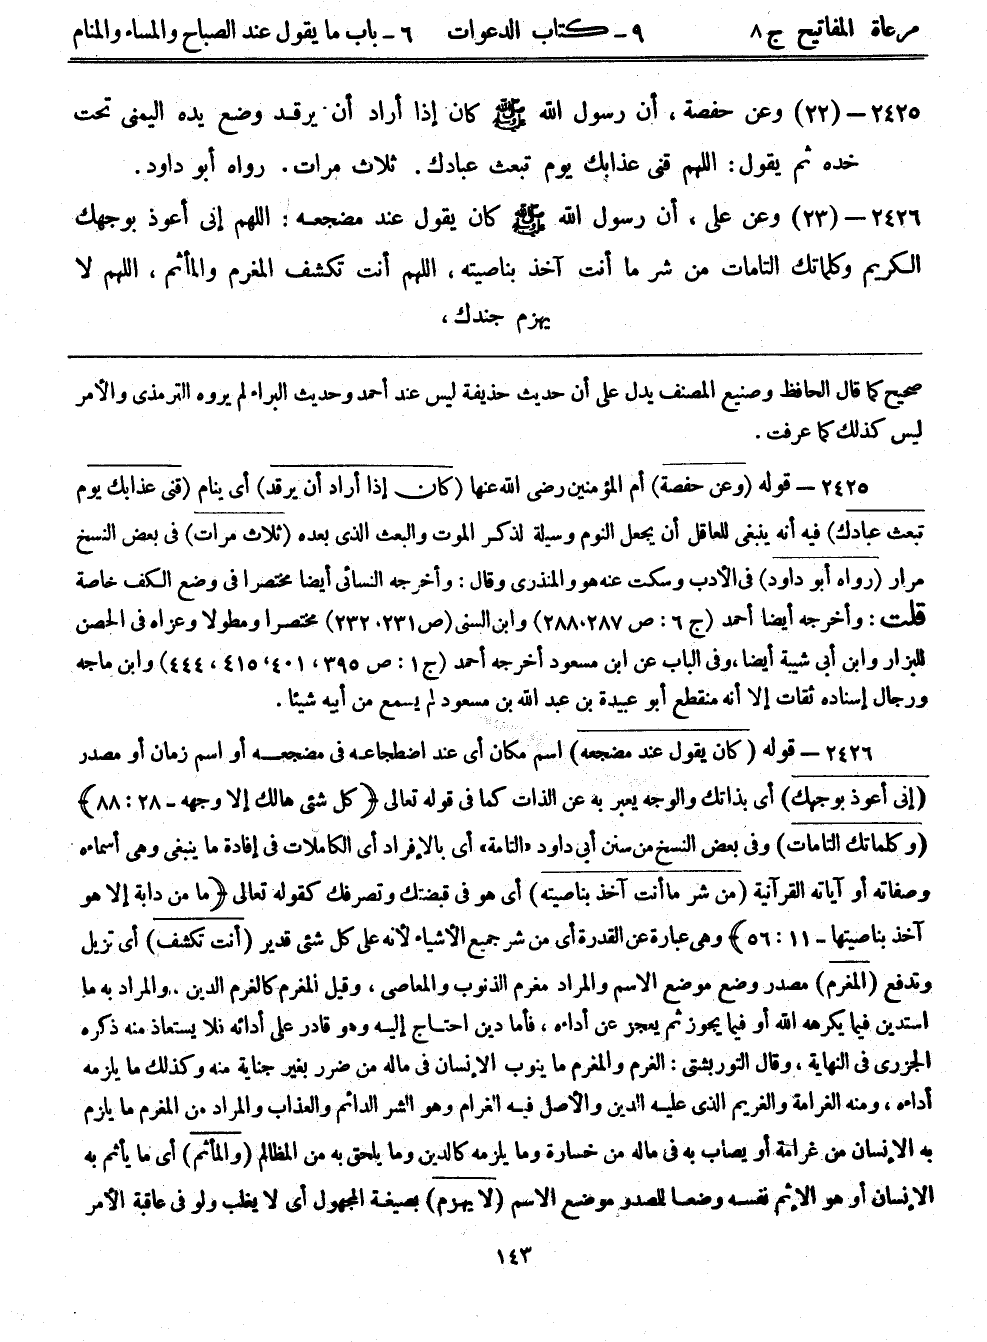 مرعاة المفاتيح ج ٨ ٩ ـ كتاب الدعوات ٦ ـ باب ما يقول عند الصباح والمساء والمنام
٢٤٢٥ – (٢٢) وعن حفصة ، أن رسول الله ﷺ كان إذا أراد أن يرقد وضع يده اليمنى تحت
خده ثم يقول : اللهم قنى عذابك يوم تبعث عبادك . ثلاث مرات . رواه أبو داود .
٢٤٢٦ – (٢٣) وعن على ، أن رسول الله ﷺ كان يقول عند مضجعه : اللهم إنى أعوذ بوجهك
الكريم وكلماتك التامات من شر ما أنت آخذ بناصيته ، اللهم أنت تكشف المغرم والمأثم ، اللهم لا
يهزم جندك ،
صحيح كما قال الحافظ وصنيع المصنف يدل على أن حديث حذيفة ليس عند أحمد وحديث البراء لم يروه الترمذى والأمر
ليس كذلك كما عرفت .
٢٤٢٥ – قوله (وعن حفصة) أم المؤمنين رضى الله عنها (كان إذا أراد أن يرقد) أى ينام (قنى عذابك يوم
تبعث عبادك) فيه أنه ينبغى للعاقل أن يجعل النوم وسيلة لذكر الموت والبعث الذى بعده (ثلاث مرات) فى بعض النسخ
مرار (رواه أبو داود) فى الأدب وسكت عنه هو والمنذرى وقال : وأخرجه النسائى أيضا مختصرا فى وضع الكف خاصة
قلت : وأخرجه أيضا أحمد (ج ٦ : ص ٢٨٧، ٢٨٨) وابن السنى (ص ٢٣١، ٢٣٢) مختصرا ومطولا وعزاه فى الحصن
للبزار وابن أبى شيبة أيضا ، وفى الباب عن ابن مسعود أخرجه أحمد (ج ١ : ص ٣٩٥ ، ٤٠١ ، ٤١٥ ، ٤٤٤) وابن ماجه
ورجال إسناده ثقات إلا أنه منقطع أبو عبيدة بن عبد الله بن مسعود لم يسمع من أبيه شيئا .
٢٤٢٦ – قوله (كان يقول عند مضجعه) اسم مكان أى عند اضطجاعه فى مضجعه أو اسم زمان أو مصدر
(إنى أعوذ بوجهك) أى بذاتك والوجه يعبر به عن الذات كما فى قوله تعالى ﴿كل شئى هالك إلا وجهه – ٢٨ : ٨٨﴾
(وكلماتك التامات) وفى بعض النسخ من سنن أبى داود «التامة» أى بالإفراد أى الكاملات فى إفادة ما ينبغى وهى أسماءه
وصفاته أو آياته القرآنية (من شر ما أنت آخذ بناصيته) أى هو فى قبضتك وتصرفك كقوله تعالى ﴿ما من دابة إلا هو
آخذ بناصيتها – ١١ : ٥٦﴾ وهى عبارة عن القدرة أى من شر جميع الأشياء لأنه على كل شئى قدير (أنت تكشف) أى تزيل
وتدفع (المغرم) مصدر وضع موضع الاسم والمراد مغرم الذنوب والمعاصى ، وقيل المغرم كالغرم الدين . والمراد به ما
استدين فيما يكرهه الله أو فيما يجوز ثم يعجز عن أداءه ، فأما دين احتاج إليه وهو قادر على أدائه فلا يستعاذ منه ذكره
الجزرى فى النهاية ، وقال التوربشتى : الغرم والمغرم ما ينوب الإنسان فى ماله من ضرر بغير جناية منه وكذلك ما يلزمه
أداءه ، ومنه الغرامة والغريم الذى عليه الدين والأصل فيه الغرام وهو الشر الدائم والعذاب والمراد من المغرم ما يلزم
به الإنسان من غرامة أو يصاب به فى ماله من خسارة وما يلزمه كالدين وما يلحق به من المظالم (والمأثم) أى ما يأثم به
الإنسان أو هو الإثم نفسه وضعا للمصدر موضع الاسم (لا يهزم) بصيغة المجهول أى لا يغلب ولو فى عاقبة الأمر
١٤٣